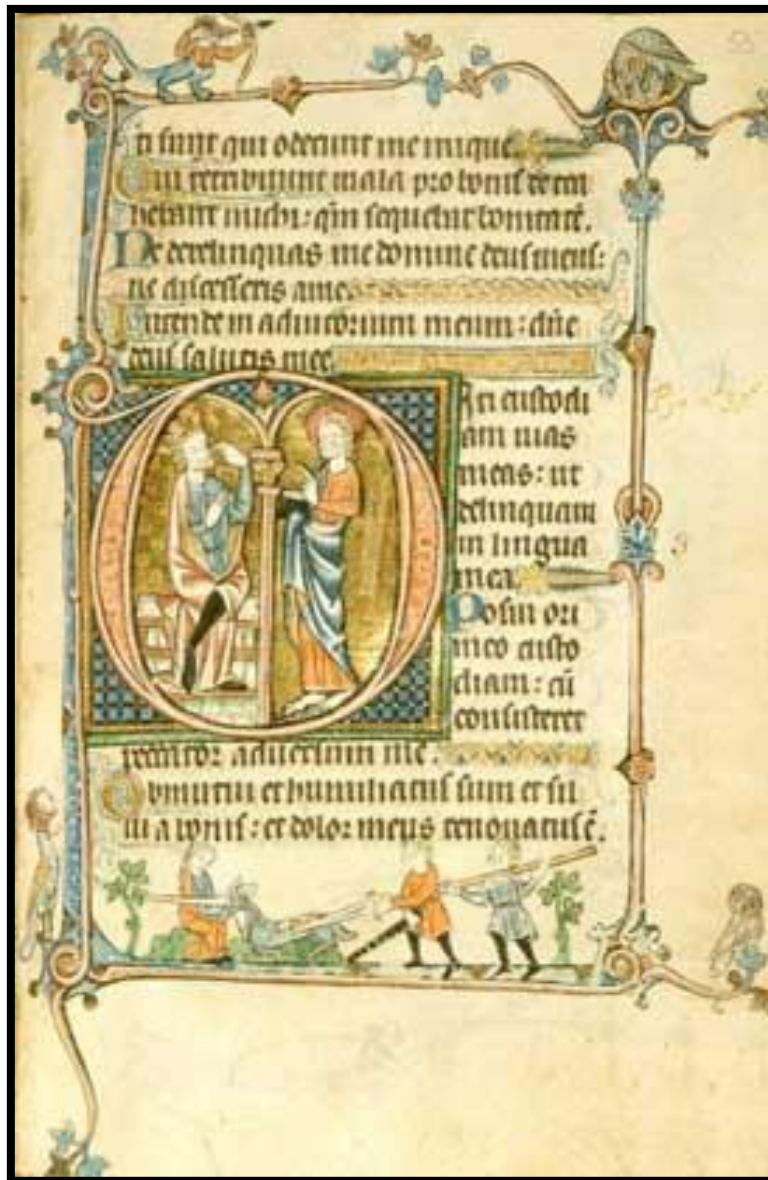 ti sunt qui oderunt me inique.
Qui retribuunt mala pro bonis detra
hebant michi: qm̄ sequebar bonitatē.
Ne derelinquas me domine deus meus:
ne discesseris a me.
Intende in adiutorium meum: dn̄e
deus salutis mee.
Dixi custodi
am uias
meas: ut
delinquam
in lingua
mea.
Posui ori
meo custo
diam: cū
consisteret
peccator aduersum me.
Obmutui et humiliatus sum et si
lui a bonis: et dolor meus renouatus ē.